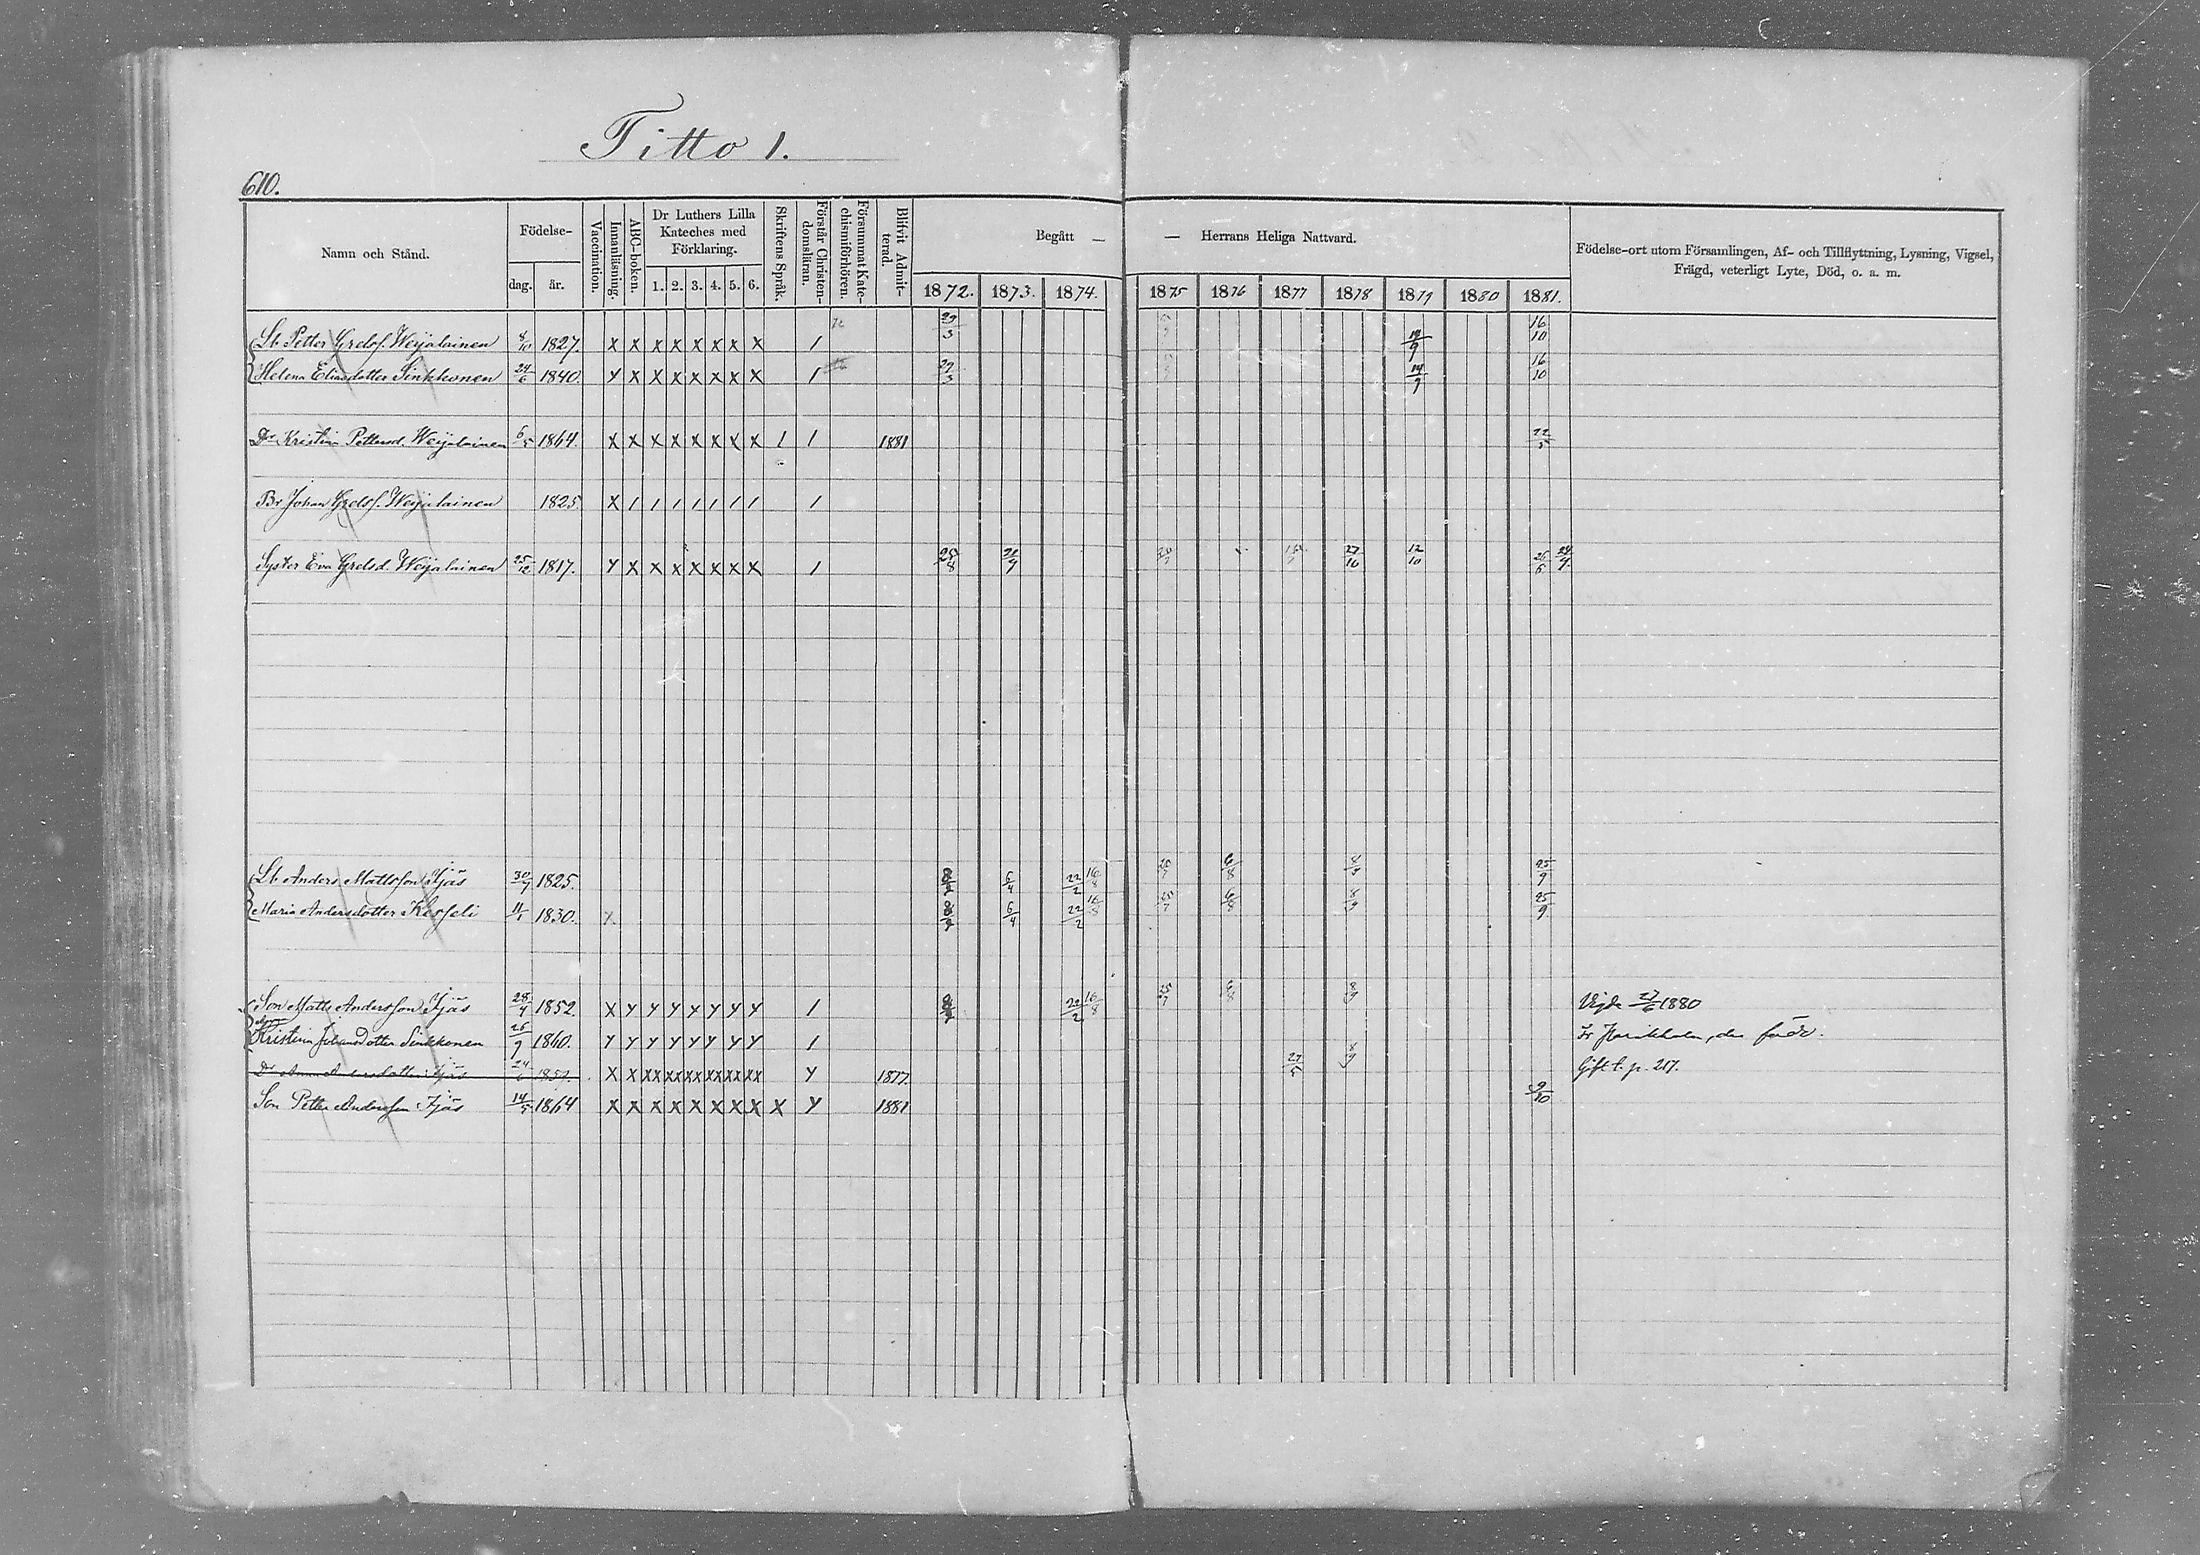 Titto 1.
610.
Namn och Stånd.
Födelse-
dag. år.
Vaccination.
Innanläsning.
ABC-boken.
Dr Luthers Lilla Kateches med Förklaring.
1. 2. 3. 4. 5. 6.
Skriftens Språk.
Förstår Christendomsläran.
Försummat Katechismiförhören.
Blifvit Admitterad.
Begått — — Herrans Heliga Nattvard.
1872. 1873. 1874. 1875 1876 1877 1878 1879 1880 1881.
Födelse-ort utom Församlingen, Af- och Tillflyttning, Lysning, Vigsel,
Frägd, veterligt Lyte, Död, o. a. m.
Lb. Petter Grelsf. Weijalainen 8/10 1827. X X X X X X X X 1 29/3 14/9 16/10
Helena Eliasdotter Sinkkonen 24/6 1840. Y X X X X X X X 1 29/3 14/9 16/10
Dr Kristina Pettersd. Weijalainen 6/5 1864. X X X X X X X X 1 1 1881 22/5
Br Johan Grelsf. Weijalainen 1825. X 1 1 1 1 1 1 1 1
Syster Eva Grelsd. Weijalainen 25/12 1817. Y X X X X X X X 1 25/8 21/9 27/10 12/10 26/6 24/9
Lb. Anders Mattsson Äjäs 30/7 1825. 6/4 22/2 16/8 25/7 6/8 8/9 25/9
Maria Andersdotter Kesseli 11/1 1830. X 6/4 22/2 16/8 25/7 6/8 8/9 25/9
Son Matts Andersson Äjäs 28/4 1852. X Y Y Y Y Y Y Y 1 22/2 16/8 25/7 6/8 8/9 Vigde 27/6 1880
Kristina Johansdotter Sinkkonen 26/9 1860. Y Y Y Y Y Y Y Y 1 Fr der född.
Dr Anna Andersdotter Äjäs 24/6 1857. X X XX XX XX XX XX XX Y 1877. 27/5 8/9 Gift t. p. 217.
Son Petter Andersson Äjäs 14/5 1864 X X X X X X X X X Y 1881 9/10